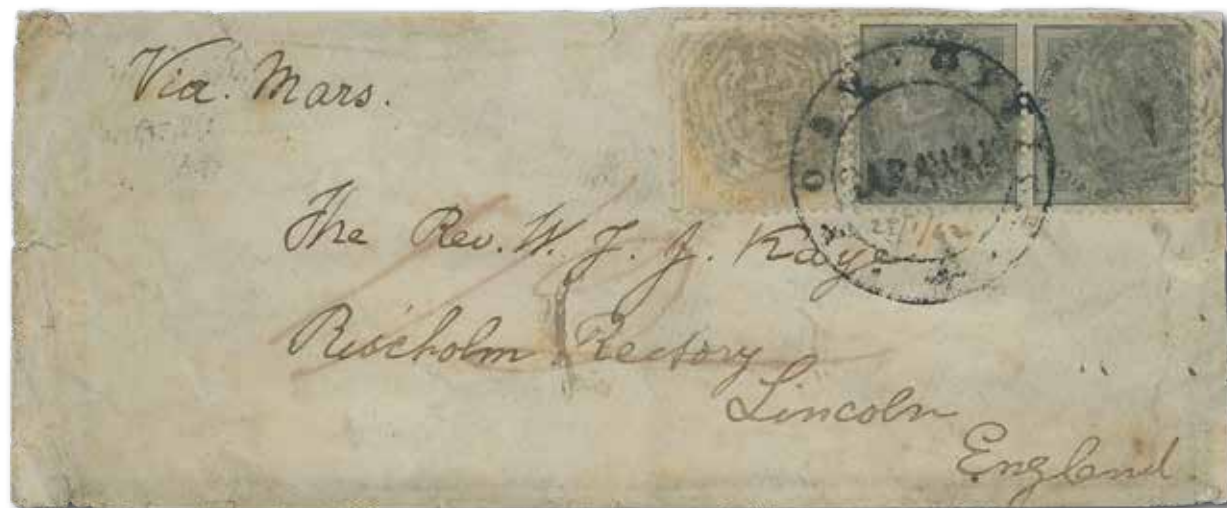 Via. Mars.
The Rev. W. F. J. Kaye
Riseholm Rectory
Lincoln
England
SARAWAK